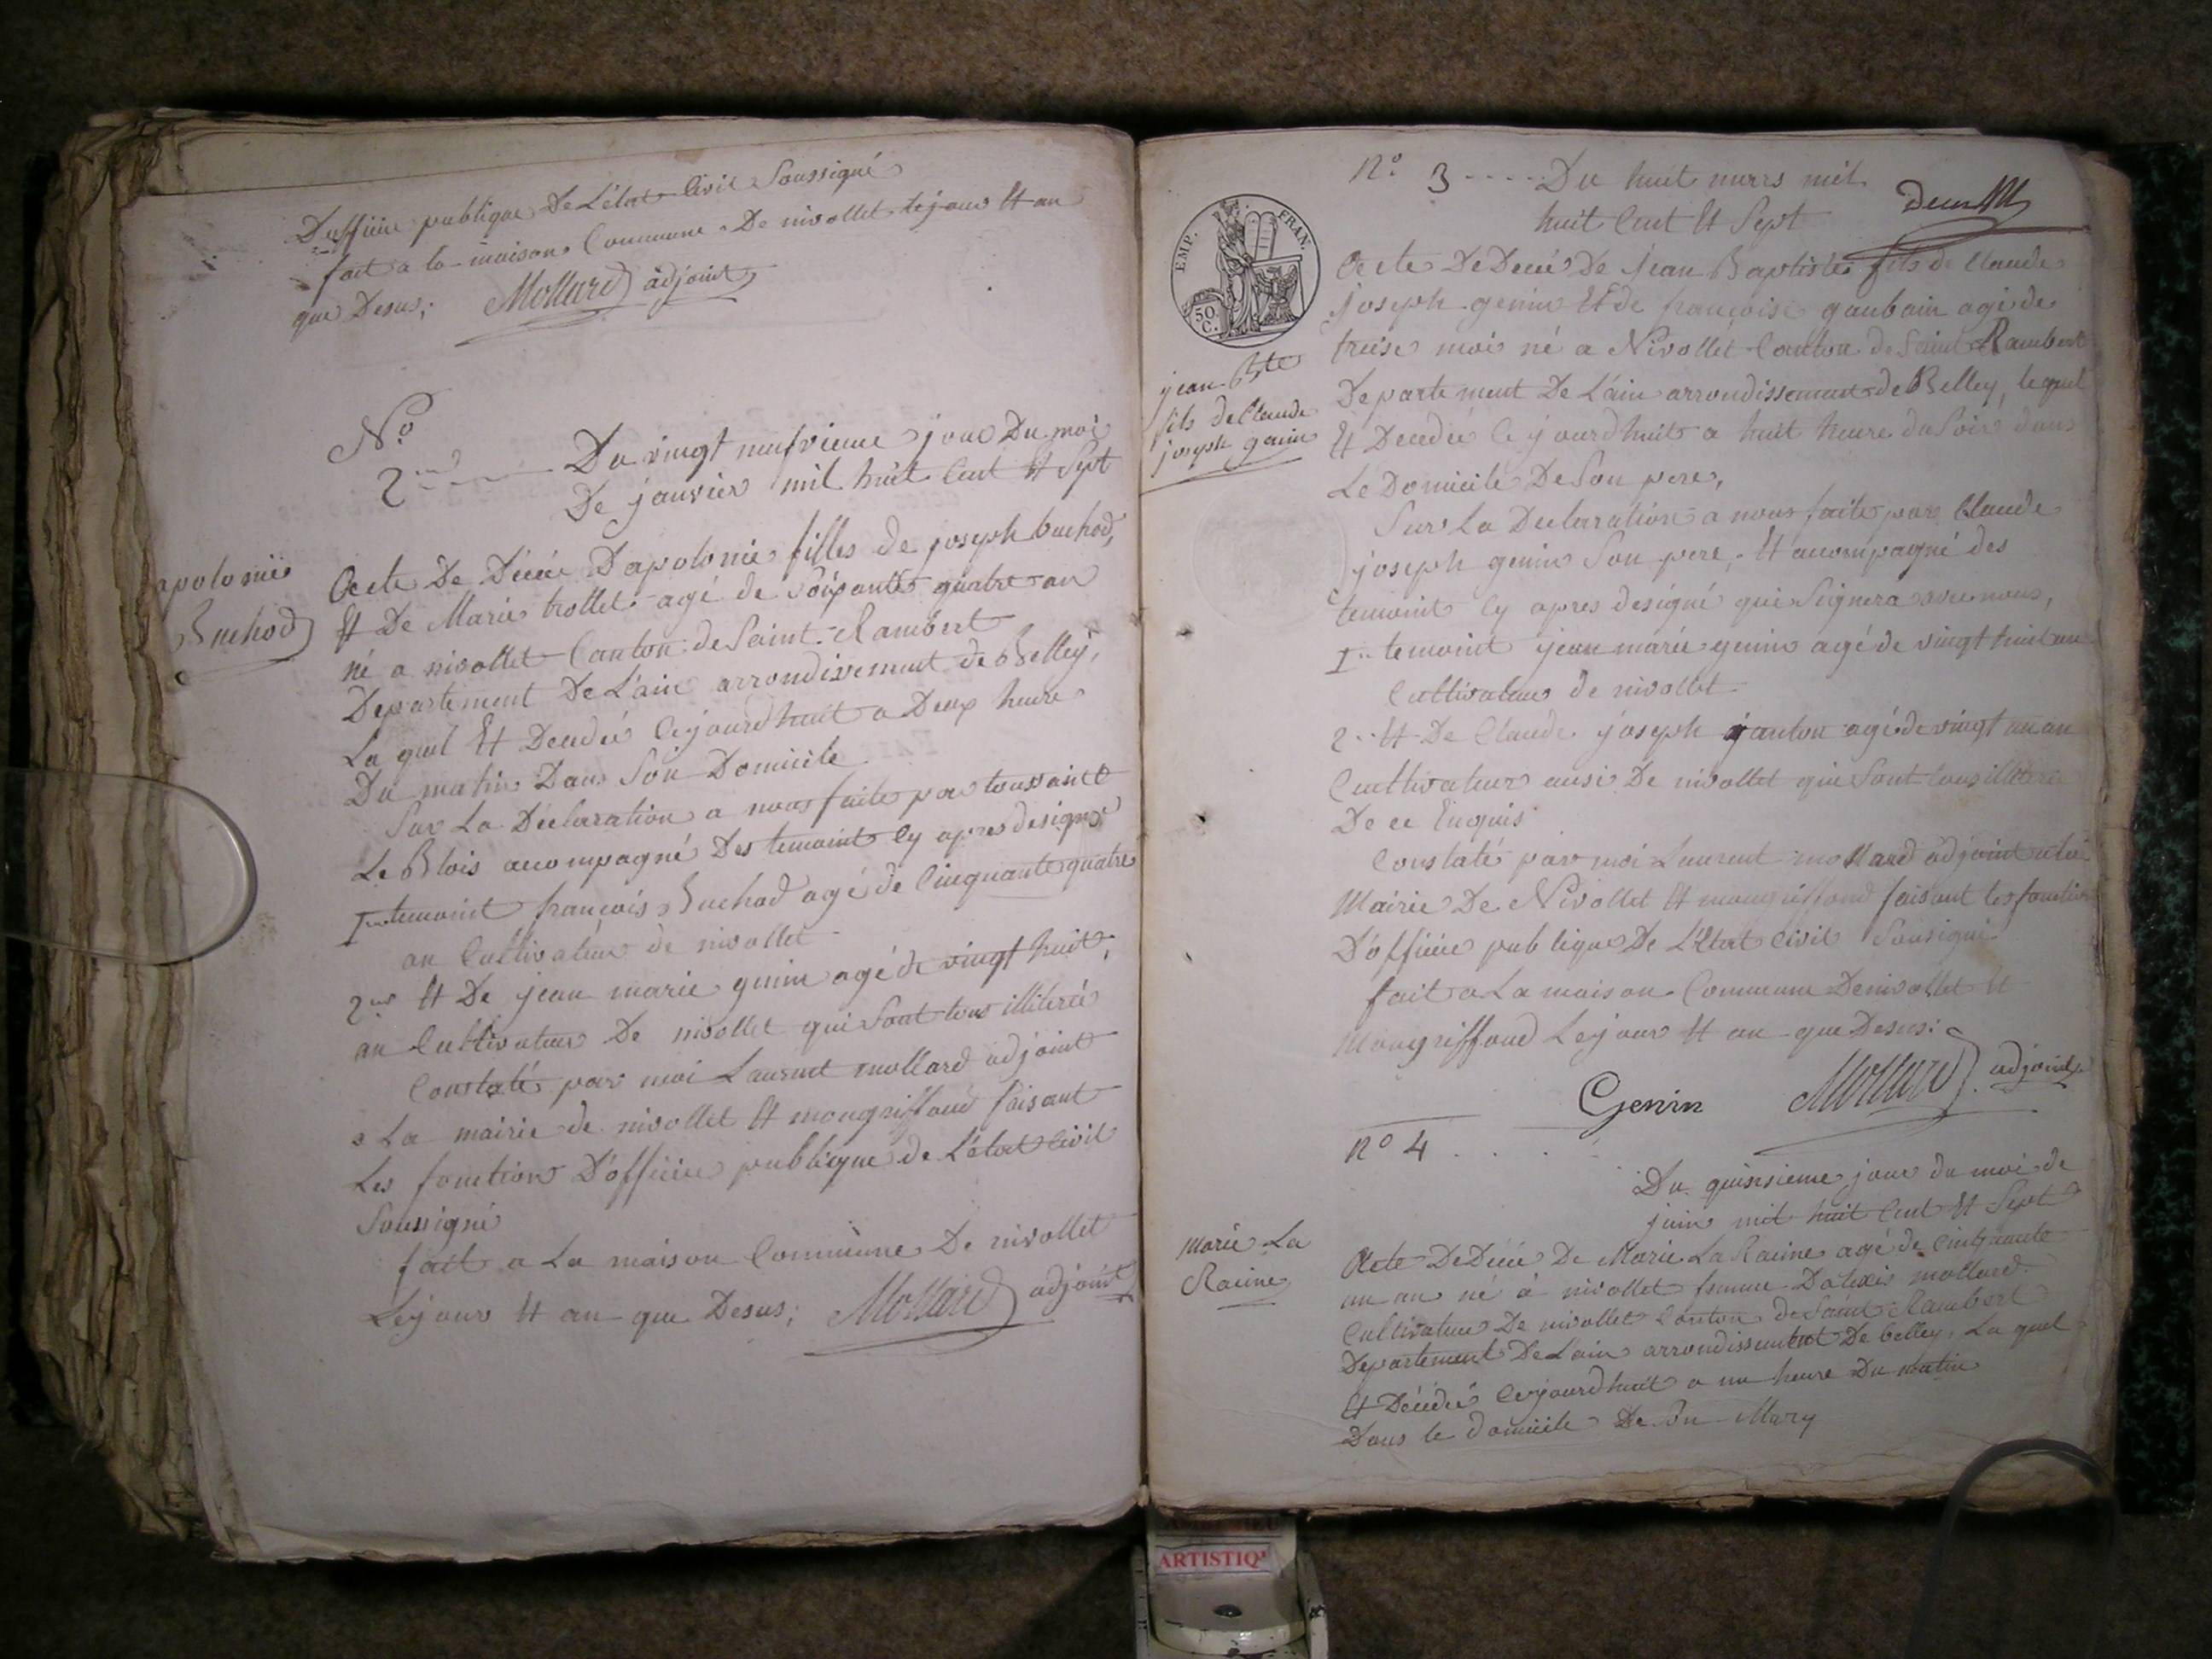 D'officie publique De L'état Civil Soussigné
fait a la maison Commune De nivollet le jour Et an
que Desus; Mollard adjoint
N.o
2 Du vingt neufvieme jour Du moi
De janvier mil huit Cent Et Sept
apolonie
Buchod
Acte De Décée D'apolonie filles de joseph buchod,
Et De Marie trollet agé de Soixante quatre an
né a nivollet Canton de Saint Rambert
Departement De L'ain arrondissement de Belley,
La quel Et Decedée Cejourd'huit a Deux heure
Du matin Dans Son Domicile
Sur La Déclaration a nous faite par toussaint
Le Blois acompagné Des temoint Cy apres designé
I temoint françois Buchod agé de Cinquante quatre
an Cultivateur de nivollet
2 Et De jean marie genin agé de vingt huit,
an Cultivateur De nivollet qui Sont tous illiteré
Constaté par moi Laurent mollard adjoint
a La mairie de nivollet Et mongriffond faisant
Les fonction D'officie publique de L'état Civil
Soussigné
fait a La maison Commune De nivollet
Le jour Et an que Desus; Mollard adjoint
N.o 3 Du huit mars mil
huit Cent Et Sept
EMP. FRAN.
50
C.
jean Bte
fils de Claude
joseph genin
Acte De Decée De jean Baptiste fils de Claude
joseph genin Et de françoise gaubain agé de
treise moi né a Nivollet Canton de Saint Rambert
Departement De L'ain arrondissement de Belley, le quel
Et Decedée Ce jourd'huit a huit heure du Soir dans
Le Domicile De Son pere,
Sur La Declaration a nous faite par Claude
joseph genin Son pere, Et acompagné des
temoint Cy apres designé qui Signera avec nous,
I temoint jean marie genin agé de vingt huit an
Cultivateur de nivollet
2 Et De Claude joseph janton agé de vingt un an
Cultivateur ausi De nivollet qui Sont tous illiteré
De ce Enquis
Constaté par moi Laurent mollard adjoint a la
Mairie De Nivollet Et mongriffond faisant les fonction
D'officie publique De L'Etat Civil Sousigné
fait a La maison Commune De nivollet Et
Mongriffond Le jour Et an que Desus;
Genin Mollard adjoint
N.o 4
Du quinsieme jour du moi de
juin mil huit Cent Et Sept
Marie La
Racine
Acte De Décée De Marie La Racine agé de Cinquante
un an né à nivollet femme D'alexis mollard
Cultivateur De nivollet Canton de Saint Rambert
Departement De L'ain arrondissement De belley, La quel
Et Décédée Cejourd'huit a un heure Du matin
Dans le domicile De Son Mary
ARTISTIQ